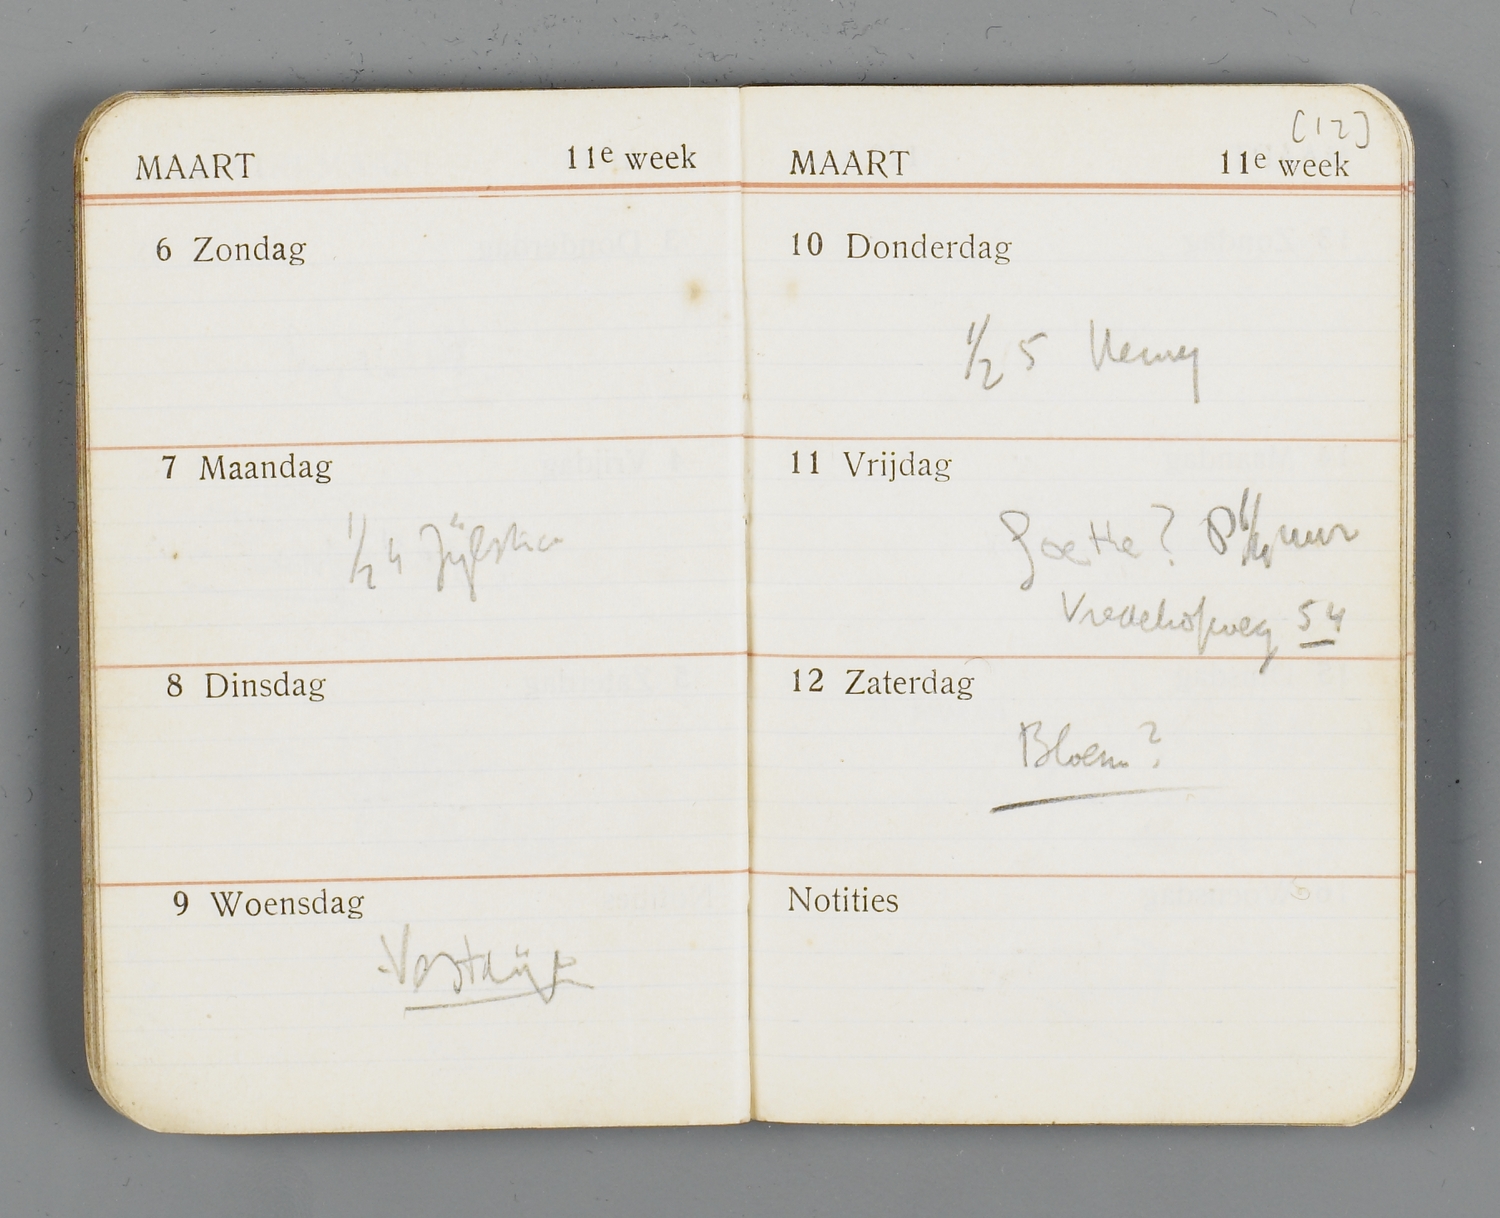 MAART 11e week
6 Zondag
7 Maandag
1/2 4 Zijlstra
8 Dinsdag
9 Woensdag
Vestdijk
[12]
MAART 11e week
10 Donderdag
1/2 5
11 Vrijdag
Goethe? 8 uur
Vredehofweg 54
12 Zaterdag
Bloem?
Notities